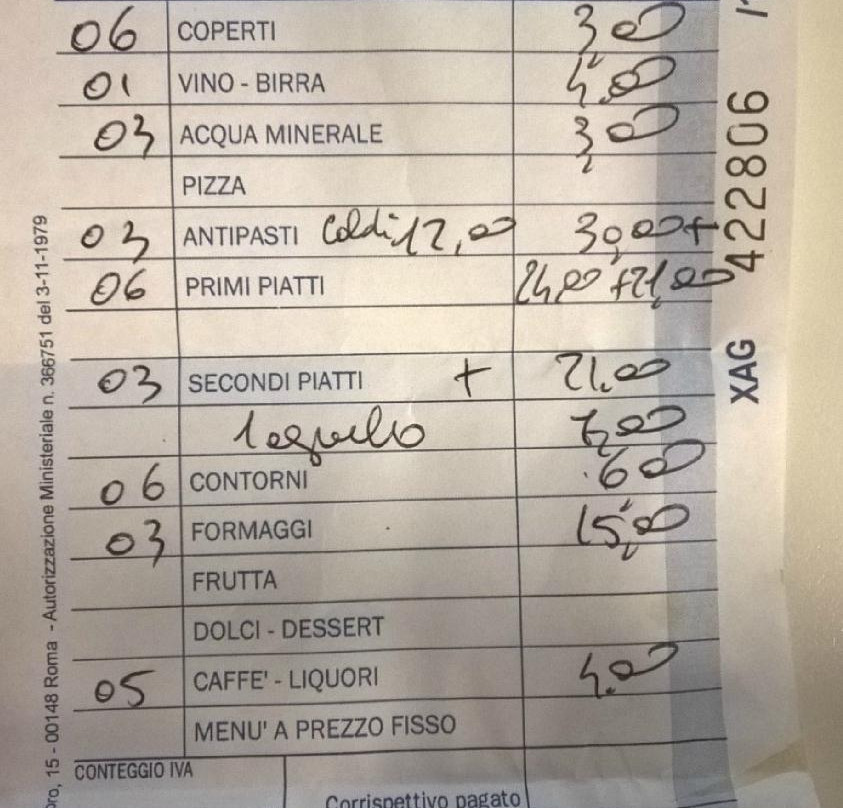 06 COPERTI 3,00
01 VINO - BIRRA 4,00
03 ACQUA MINERALE 3,00
PIZZA
03 ANTIPASTI Caldi 12,00 30,00+
06 PRIMI PIATTI 24,00+21,00
03 SECONDI PIATTI + 21,00
7,00
06 CONTORNI 6,00
03 FORMAGGI 15,00
FRUTTA
DOLCI - DESSERT
05 CAFFE' - LIQUORI 4,00
MENU' A PREZZO FISSO
CONTEGGIO IVA
Corrispettivo pagato
oro, 15 - 00148 Roma - Autorizzazione Ministeriale n. 366751 del 3-11-1979
XAG 422806